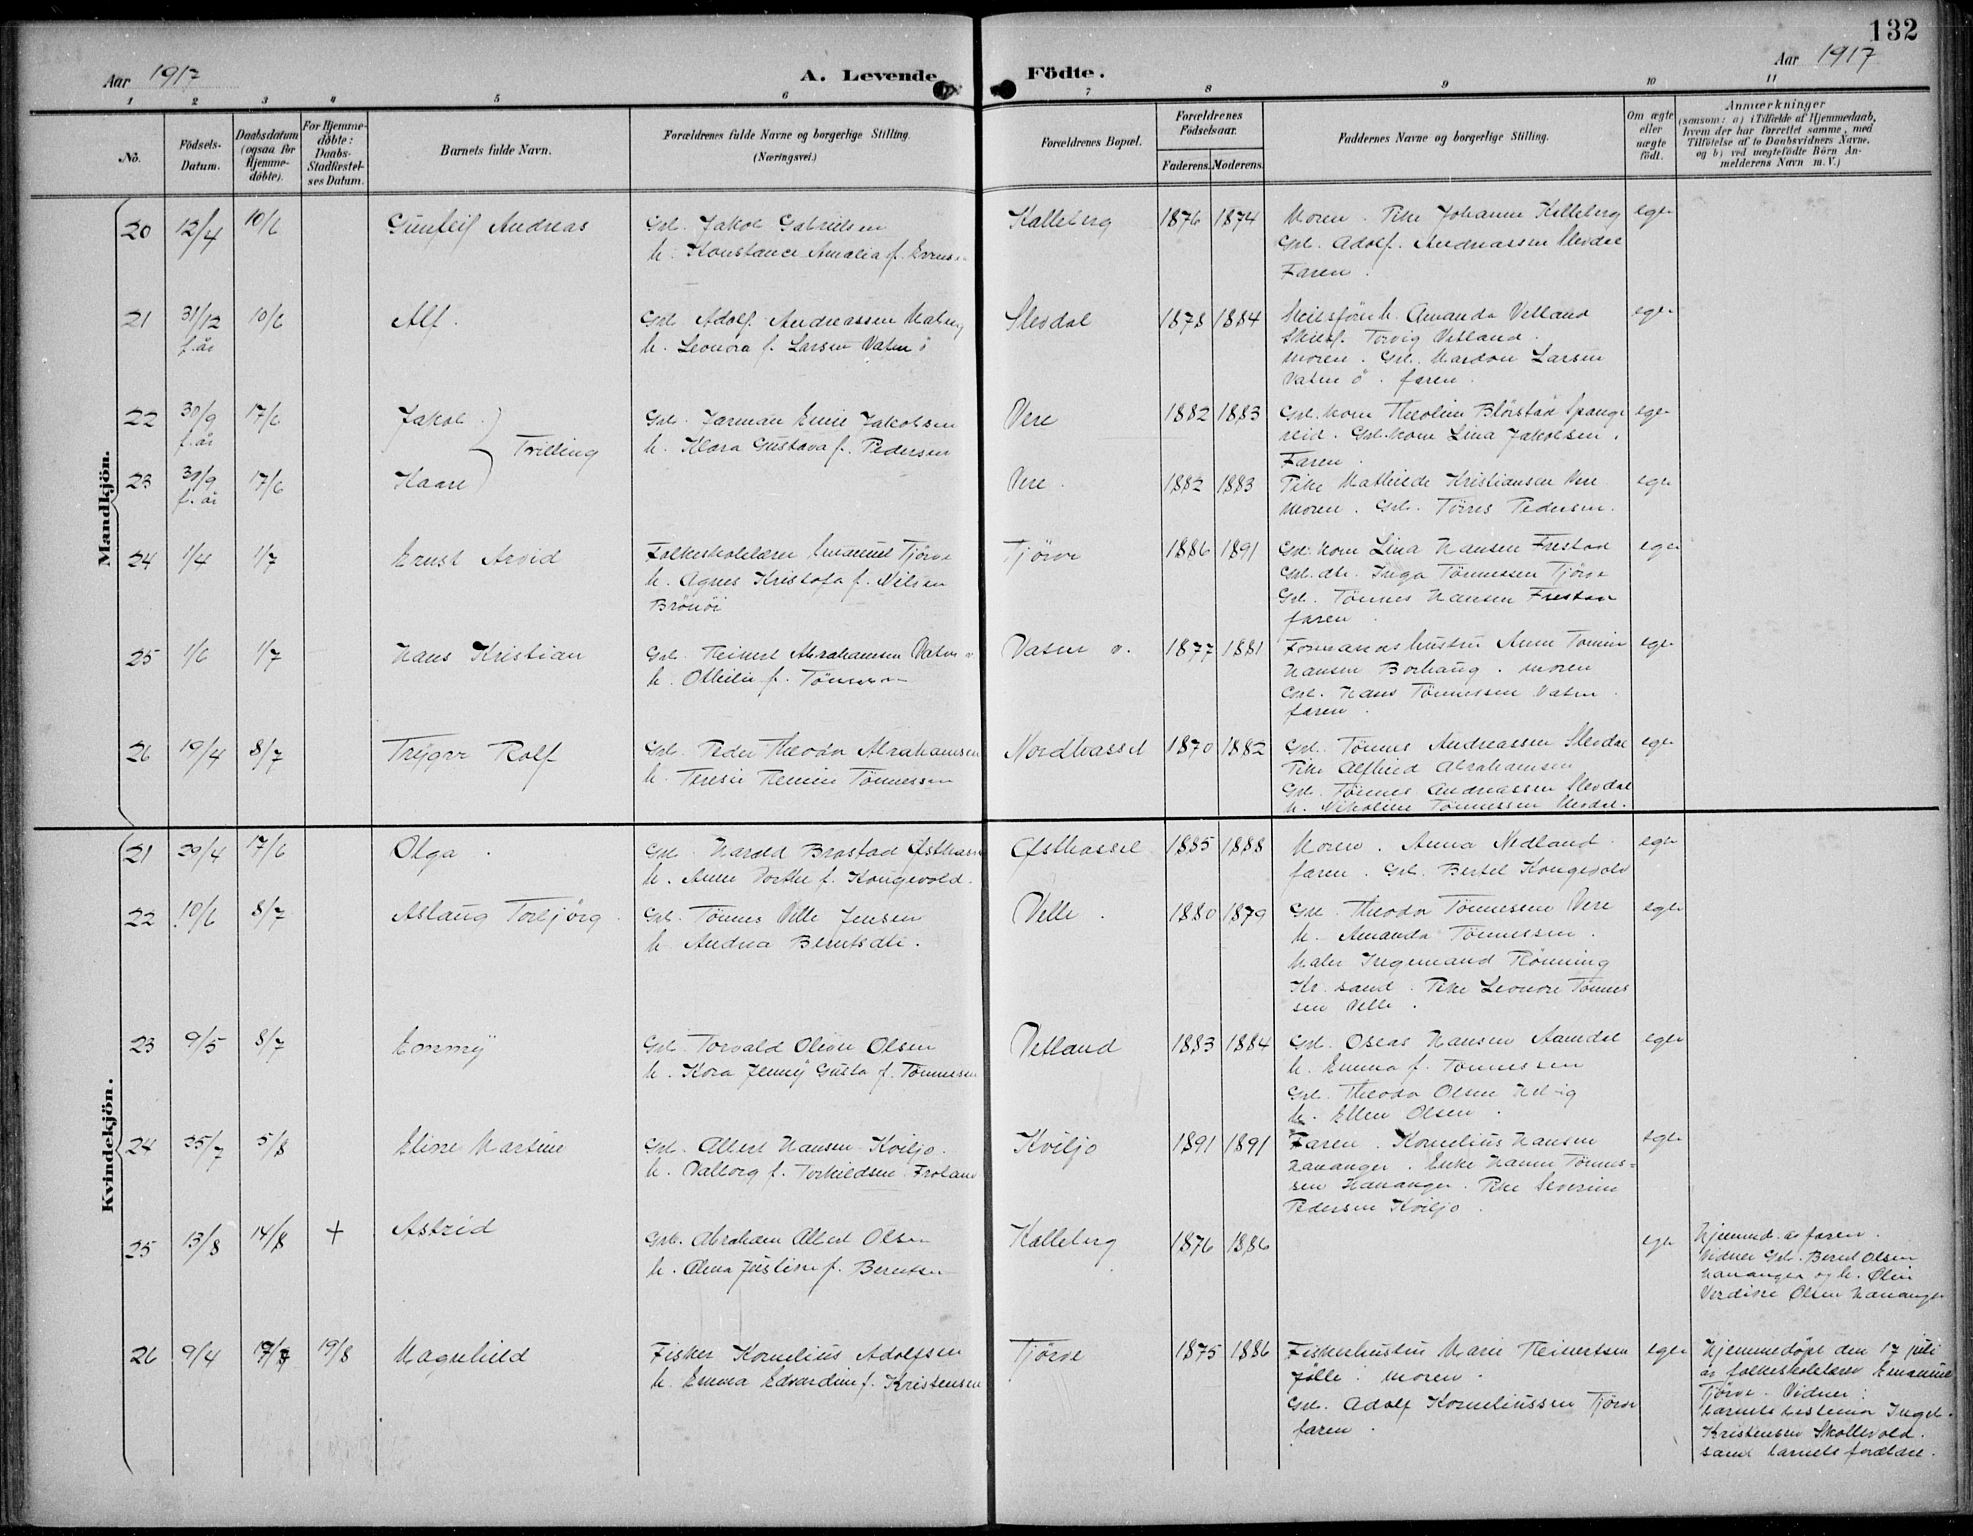 132
Aar 1917
A. Levende Födte.
Aar 1917
1 2 3 4 5 6 7 8 9 10 11
No.
Födsels-Datum.
Daabsdatum (ogsaa for Hjemme-döbte).
For Hjemme-döbte: Daabs-Stadfæstel-ses Datum.
Barnets fulde Navn.
Forældrenes fulde Navne og borgerlige Stilling.
(Næringsvei.)
Forældrenes Bopæl.
Forældrenes Födselsaar.
Faderens. Moderens.
Faddernes Navne og borgerlige Stilling.
Om ægte eller uægte födt.
Anmærkninger
(saasom: a) i Tilfælde af Hjemmedaab, hvem der har forrettet samme, med Tilföielse af to Daabsvidners Navne, og b) ved uægtefödte Börn An-melderens Navn m. V.)
Mandkjön.
20 12/4 10/6 Gunleif Andreas
Gbr. Jakob Gabrielsen
h. Konstance Amalia f. Evens
Kalleberg 1876 1874
Moren. Pike Johanne Kalleberg
Gbr. Adolf Andreassen Slevdal
Faren.
egte
21 31/12 f. år 10/6 Alf.
Gbr. Adolf Andreassen
h. Leonora f. Larsen Vatne ö
Slevdal 1878 1884
Amanda Vetland
Torvig Vetland.
moren. Gbr. Mardon Larsen
Vatne ö. faren.
egte
22 30/9 f. år 17/6 Jakob.
Tvilling
Gbr. Jarman Emil Jakobsen
h. Klara Gustava f. Pedersen
Vere 1882 1883
Gbr. kone Theoline Blörstad Spange
reid. Gbr. kone Lina Jakobsen.
Faren.
egte
23 30/9 f. år 17/6 Kaare
Vere. 1882 1883
Pike Mathilde Kristiansen Vere
moren. Gbr. Törres Pedersen.
egte
24 1/4 1/7 Ernst Arvid
Folkeskolelærer Emanuel Tjörve
h. Agnes Kristofa f. Nilsen
Brönöi
Tjörve 1886 1891
Gbr. kone Lina Hansen Frestad
Gbr. dtr. Inga Tönnessen Tjörve
Gbr. Tönnes Hansen Frestad
faren.
egte
25 1/6 1/7 Hans Kristian
Gbr. Reinert Abrahamsen Vatne ö
h. Othilie f. Tönnessen
Vatne ö. 1877 1881
Formandshustru Anne Tomine
Hansen Borhaug. moren
Gbr. Hans Tönnessen Vatne.
faren.
egte
26 19/4 8/7 Trygve Rolf
Gbr. Peder Theodor Abrahamsen
h. Teresie Remine Tönnessen
Nordhassel 1870 1882
Gbr. Tönnes Andreassen Slevdal
Pike Alfhild Abrahamsen
Gbr. Tönnes Andreassen Slevdal
h. Nikoline Tönnessen Slevdal.
egte
Kvindekjön.
21 29/4 17/6 Olga.
Gbr. Harald Brastad Østhassel
h. Anne Dorthe f. Kongevold.
Østhassel 1885 1888
Moren. Anna Nedland.
faren. Gbr. Bertel Kongevold
egte
22 10/6 8/7 Aslaug Torbjörg.
Gbr. Tönnes Velle Jensen
h. Andrea Berntsdtr.
Velle. 1880 1879
Gbr. Theodor Tönnessen Vere
h. Amanda Tönnessen.
Maler Ingemand Rönning
Kr. sand. Pike Leonore Tönnes
sen Velle.
egte
23 9/5 8/7 Emmy
Gbr. Torvald Oliver Olsen
h. Kora Jenny Gusta f. Tönnessen
Vetland 1883 1884
Gbr. Oseas Hansen Aamdal
h. Emma f. Tönnessen
Gbr. Theodor Olsen
h. Ellen Olsen.
egte
24 25/7 5/8 Eline Martine
Gbr. Albert Hansen Kviljo.
h. Valborg f. Torkildsen Froland
Kviljo 1891 1891
Faren. Kornelius Hansen
Hananger. Enke Hanne Tönnes-
sen Hananger. Pike Severine
Pedersen Kviljo.
egte
25 13/8 14/8 + Astrid
Gbr. Abraham Albert Olsen
h. Alma Justine f. Berntsen
Kalleberg 1876 1886
egte
Hjemmed. av faren.
Vidner Gbr. Bernt Olsen
Hananger og h. Olin
Verdine Olsen Hananger
26 9/4 17/7 19/8 Magnhild
Fisker Kornelius Adolfsen
h. Emma Edvardine f. Kristensen
Tjörve 1875 1886
Fiskerhustru Marie Reinertsen
Jölle. moren.
Gbr. Adolf Korneliussen Tjörve
faren.
egte
Hjemmedöpt den 17 juli
av folkeskolelærer Emanuel
Tjörve. Vidner:
barnets bestemor Ingeb.
Kristensen Skollevold.
samt barnets forældre.